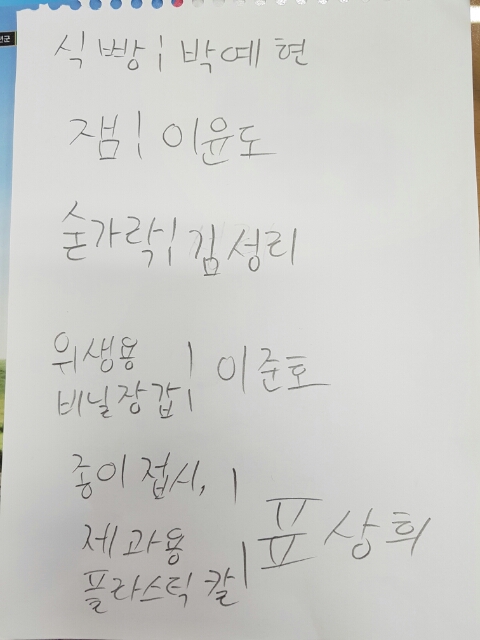 식빵 | 박예현
잼 | 이윤도
숟가락 | 김성리
위생용
비닐장갑 | 이준호
종이접시, |
제과용
플라스틱 칼 | 표상희